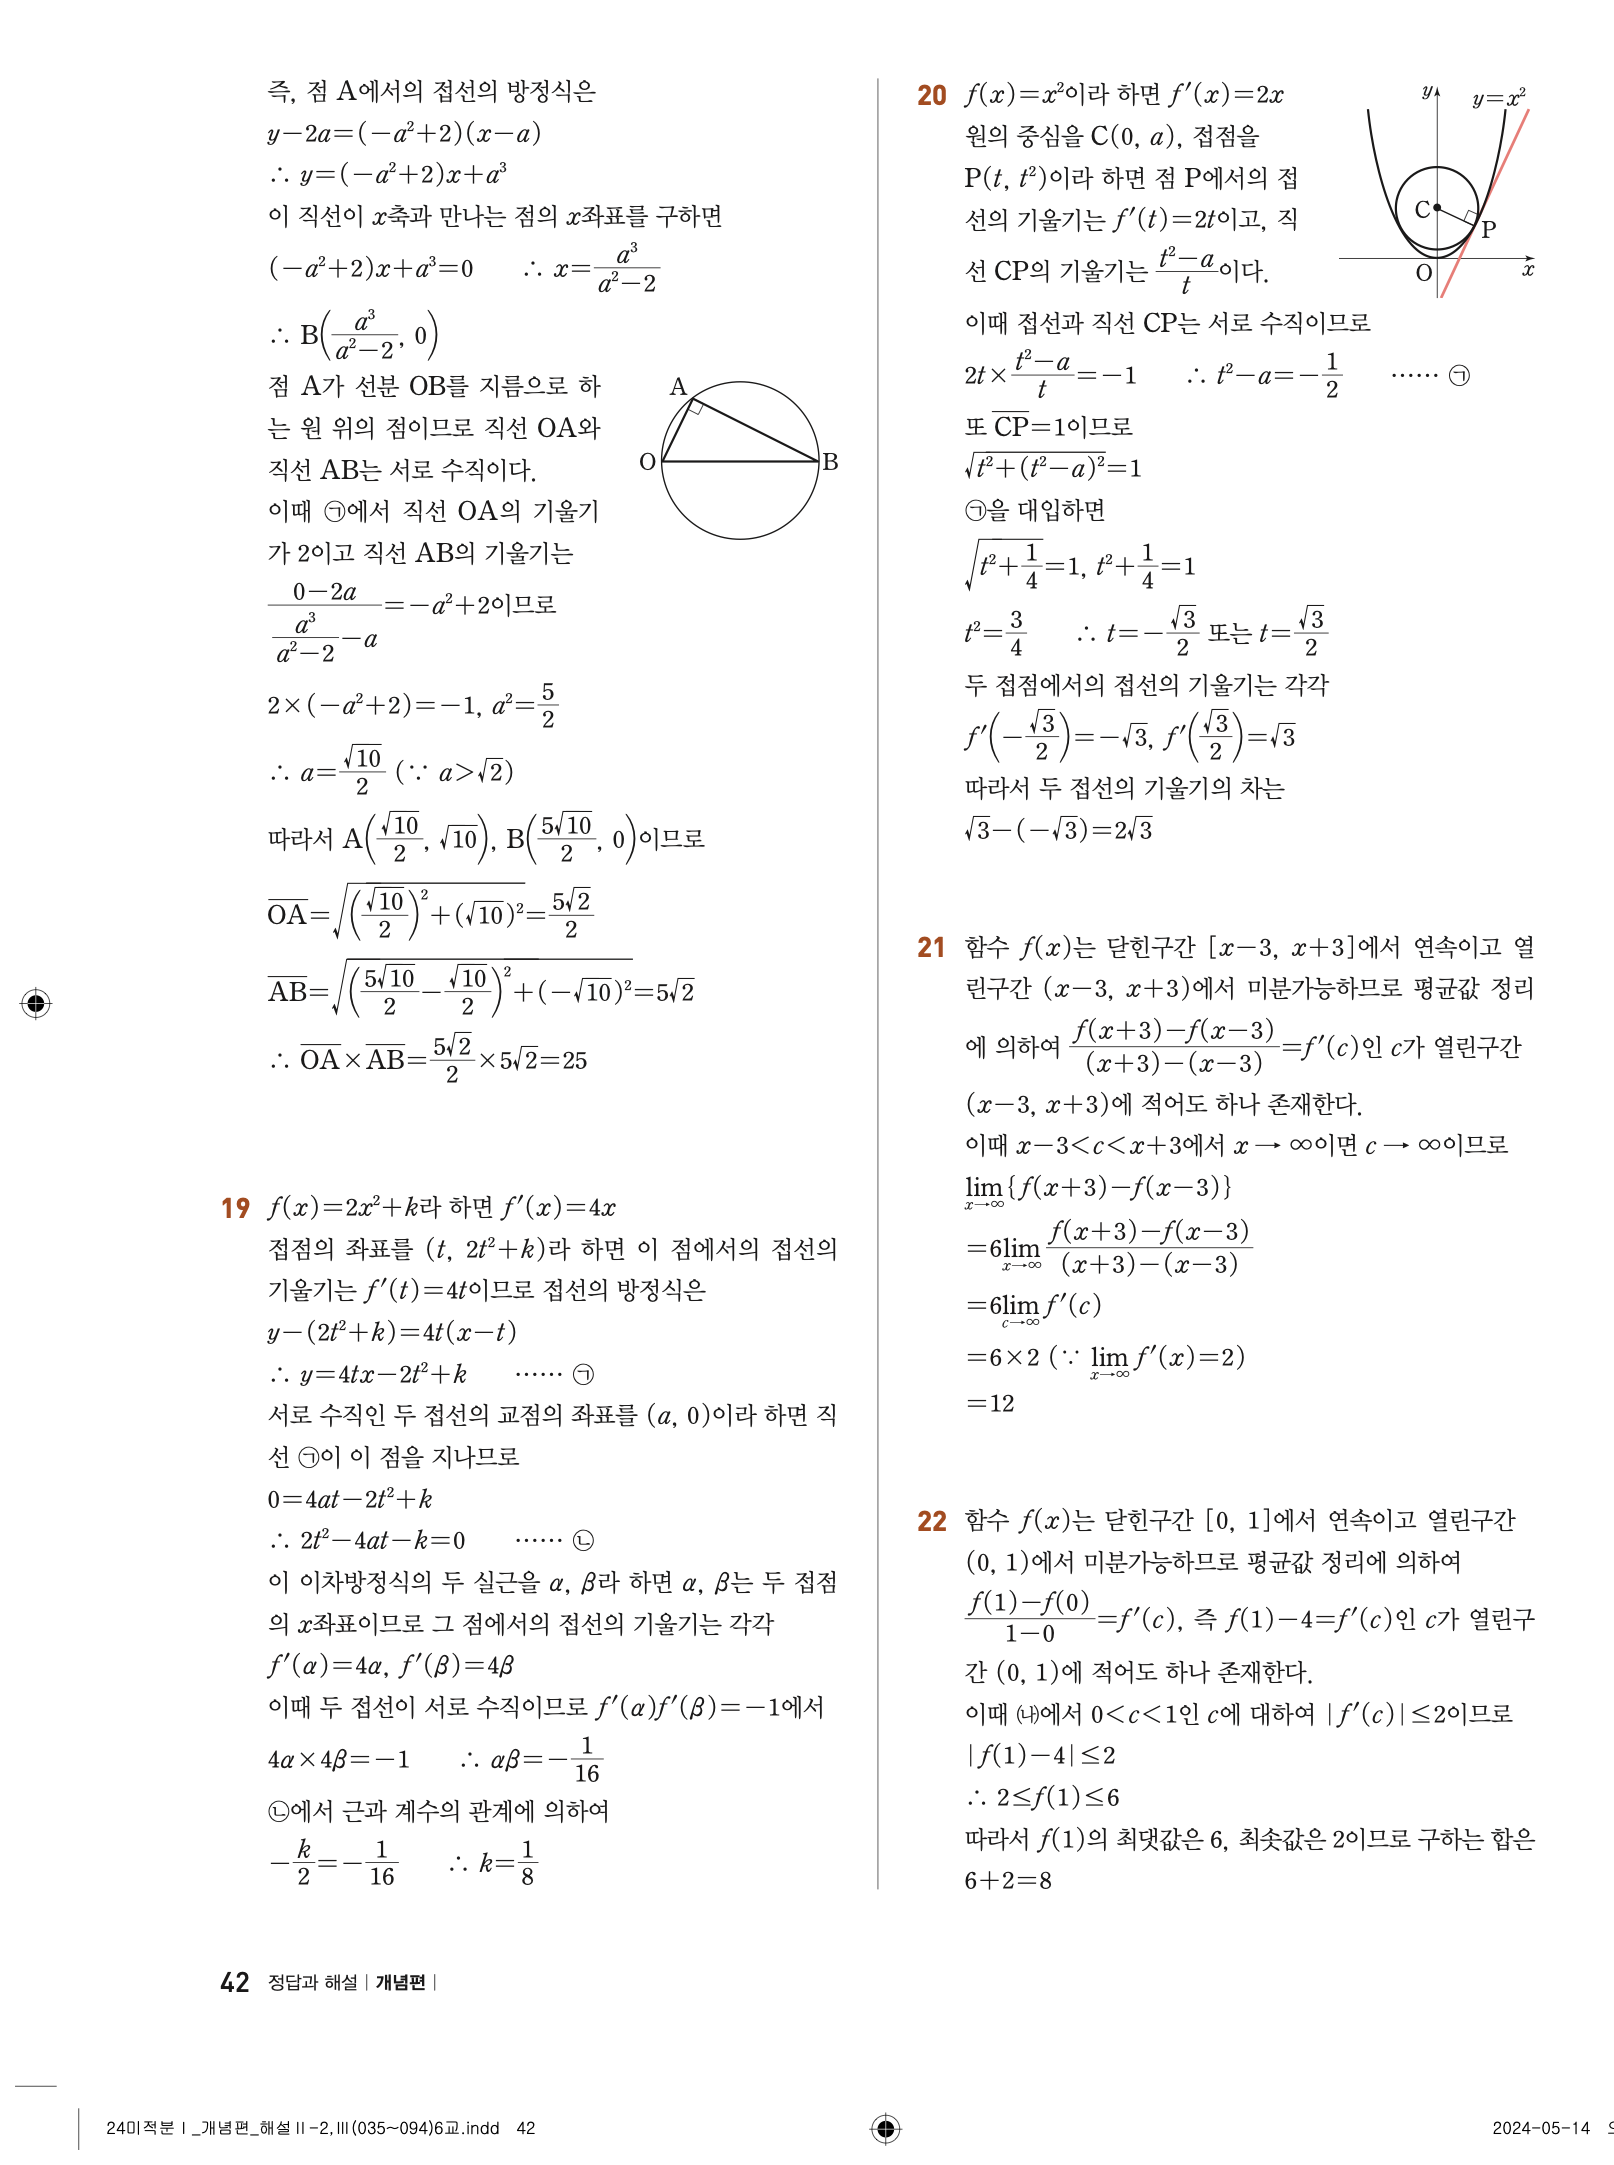 즉, 점 A에서의 접선의 방정식은
y−2a=(−a²+2)(x−a)
∴ y=(−a²+2)x+a³
이 직선이 x축과 만나는 점의 x좌표를 구하면
(−a²+2)x+a³=0  ∴ x=a³/(a²−2)
∴ B(a³/(a²−2), 0)
점 A가 선분 OB를 지름으로 하
는 원 위의 점이므로 직선 OA와
직선 AB는 서로 수직이다.
이때 ㉠에서 직선 OA의 기울기
가 2이고 직선 AB의 기울기는
(0−2a)/(a³/(a²−2)−a)=−a²+2이므로
A
O
B
2×(−a²+2)=−1, a²=5/2
∴ a=√10/2 (∵ a>√2)
따라서 A(√10/2, √10), B(5√10/2, 0)이므로
OA=√((√10/2)²+(√10)²)=5√2/2
AB=√((5√10/2−√10/2)²+(−√10)²)=5√2
∴ OA×AB=5√2/2×5√2=25
19 f(x)=2x²+k라 하면 f′(x)=4x
접점의 좌표를 (t, 2t²+k)라 하면 이 점에서의 접선의
기울기는 f′(t)=4t이므로 접선의 방정식은
y−(2t²+k)=4t(x−t)
∴ y=4tx−2t²+k  …… ㉠
서로 수직인 두 접선의 교점의 좌표를 (a, 0)이라 하면 직
선 ㉠이 이 점을 지나므로
0=4at−2t²+k
∴ 2t²−4at−k=0  …… ㉡
이 이차방정식의 두 실근을 α, β라 하면 α, β는 두 접점
의 x좌표이므로 그 점에서의 접선의 기울기는 각각
f′(α)=4α, f′(β)=4β
이때 두 접선이 서로 수직이므로 f′(α)f′(β)=−1에서
4α×4β=−1  ∴ αβ=−1/16
㉡에서 근과 계수의 관계에 의하여
−k/2=−1/16  ∴ k=1/8
20 f(x)=x²이라 하면 f′(x)=2x
원의 중심을 C(0, a), 접점을
P(t, t²)이라 하면 점 P에서의 접
선의 기울기는 f′(t)=2t이고, 직
선 CP의 기울기는 (t²−a)/t이다.
y
y=x²
C
P
O
x
이때 접선과 직선 CP는 서로 수직이므로
2t×(t²−a)/t=−1  ∴ t²−a=−1/2  …… ㉠
또 CP=1이므로
√(t²+(t²−a)²)=1
㉠을 대입하면
√(t²+1/4)=1, t²+1/4=1
t²=3/4  ∴ t=−√3/2 또는 t=√3/2
두 접점에서의 접선의 기울기는 각각
f′(−√3/2)=−√3, f′(√3/2)=√3
따라서 두 접선의 기울기의 차는
√3−(−√3)=2√3
21 함수 f(x)는 닫힌구간 [x−3, x+3]에서 연속이고 열
린구간 (x−3, x+3)에서 미분가능하므로 평균값 정리
에 의하여 (f(x+3)−f(x−3))/((x+3)−(x−3))=f′(c)인 c가 열린구간
(x−3, x+3)에 적어도 하나 존재한다.
이때 x−3<c<x+3에서 x → ∞이면 c → ∞이므로
lim x→∞ {f(x+3)−f(x−3)}
=6 lim x→∞ (f(x+3)−f(x−3))/((x+3)−(x−3))
=6 lim c→∞ f′(c)
=6×2 (∵ lim x→∞ f′(x)=2)
=12
22 함수 f(x)는 닫힌구간 [0, 1]에서 연속이고 열린구간
(0, 1)에서 미분가능하므로 평균값 정리에 의하여
(f(1)−f(0))/(1−0)=f′(c), 즉 f(1)−4=f′(c)인 c가 열린구
간 (0, 1)에 적어도 하나 존재한다.
이때 ㈏에서 0<c<1인 c에 대하여 |f′(c)|≤2이므로
|f(1)−4|≤2
∴ 2≤f(1)≤6
따라서 f(1)의 최댓값은 6, 최솟값은 2이므로 구하는 합은
6+2=8
42 정답과 해설 | 개념편 |
24미적분Ⅰ_개념편_해설Ⅱ-2,Ⅲ(035~094)6교.indd 42
2024-05-14